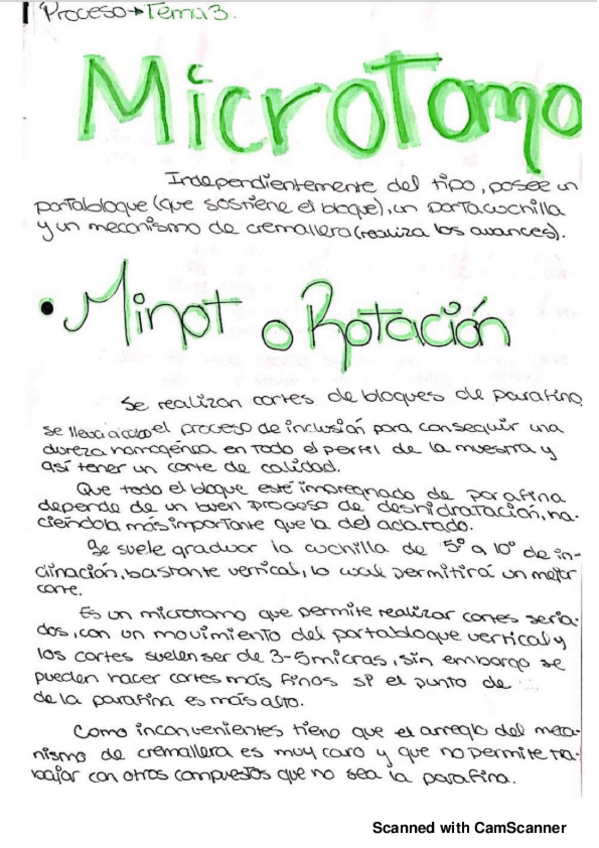 Proceso → Tema 3.
MicroTomo
Independientemente del tipo, posee un
portabloque (que sostiene el bloque), un portacuchilla
y un mecanismo de cremallera (realiza los avances).
• Minot o Rotación
Se realizan cortes de bloques de parafina,
se lleva a cabo el proceso de inclusión para conseguir una
dureza homogénea en todo el perfil de la muestra y
así tener un corte de calidad.
Que todo el bloque esté impregnado de parafina
depende de un buen proceso de deshidratación, ha-
ciéndola más importante que la del aclarado.
Se suele graduar la cuchilla de 5º a 10º de in-
clinación, bastante vertical, lo cual permitirá un mejor
corte.
Es un microtomo que permite realizar cortes seria-
dos, con un movimiento del portabloque vertical y
los cortes suelen ser de 3-5 micras, sin embargo se
pueden hacer cortes más finos si el punto de
de la parafina es más alto.
Como inconvenientes tiene que el arreglo del meca-
nismo de cremallera es muy caro y que no permite tra-
bajar con otros compuestos que no sea la parafina.
Scanned with CamScanner